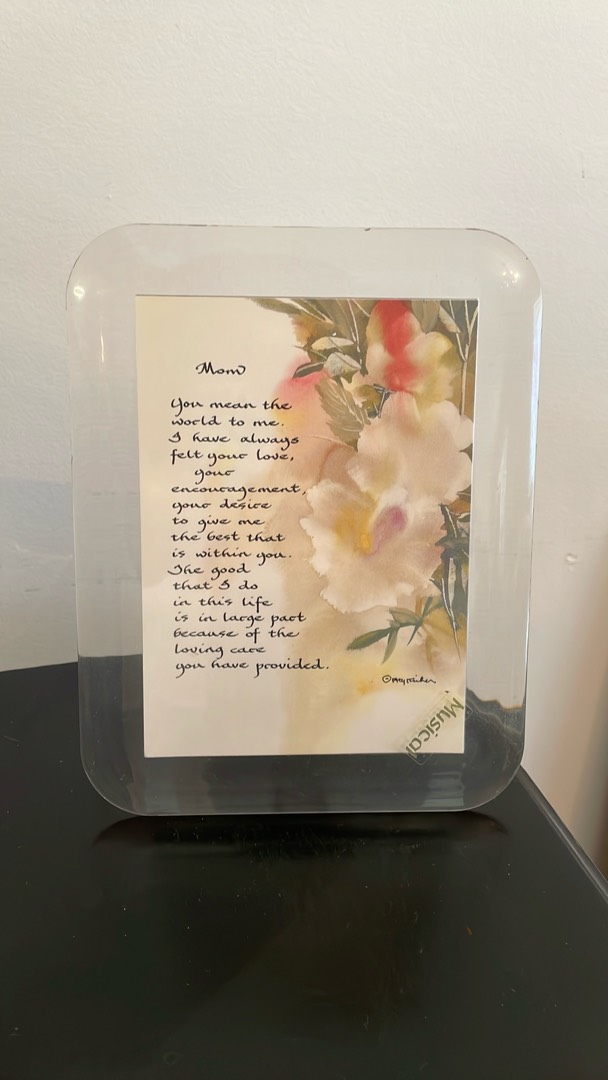 Mom
You mean the
world to me.
I have always
felt your love,
your
encouragement,
your desire
to give me
the best that
is within you.
The good
that I do
in this life
is in large part
because of the
loving care
you have provided.
Musical